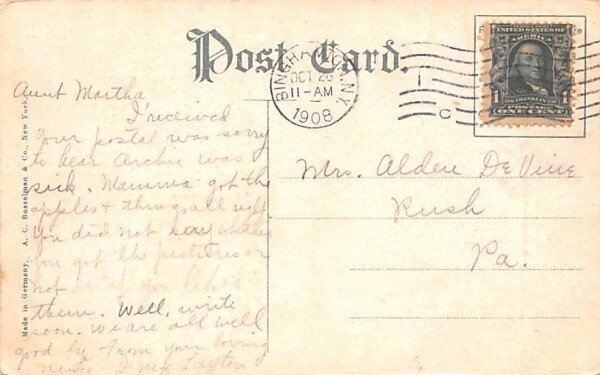 Post Card.
BINGHAMTON, N.Y.
OCT 26
11-AM
1908
1
C
UNITED STATES OF
AMERICA
FRANKLIN
1 1
ONE CENT
Aunt Martha
I received
your postal was sorry
to hear Archie was
sick. Mamma got the
apples & things all right
you did not say whether
you got the pictures or
not or if you liked
them. Well, write
soon. We are all well
good by from your loving
Layton
Mrs. Alden DeVine
Rush
Pa.
Made in Germany. A. C. Bosselman & Co., New York.